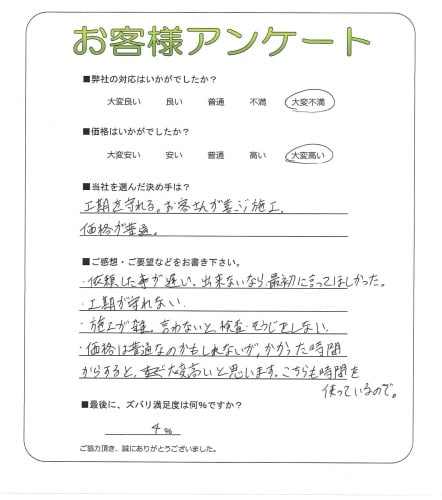 お客様アンケート
■弊社の対応はいかがでしたか?
大変良い 良い 普通 不満 大変不満
■価格はいかがでしたか?
大変安い 安い 普通 高い 大変高い
■当社を選んだ決め手は?
工期を守れる。お客さんが喜ぶ施工、
価格が普通。
■ご感想・ご要望などをお書き下さい。
・依頼した事が遅い、出来ないなら最初に言ってほしかった。
・工期が守れない
・施工が雑。言わないと、検査・そうじをしない
・価格は普通なのかもしれないが、かかった時間
からすると、大変高いと思います。こちらも時間を
使っているので。
■最後に、ズバリ満足度は何%ですか?
4%
ご協力頂き、誠にありがとうございました。